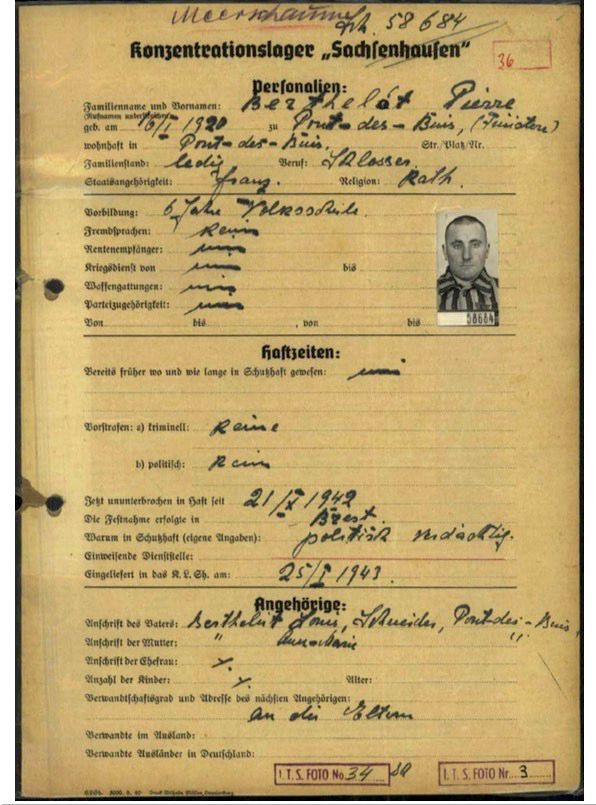 Meerschaum
Nr. 58684
Konzentrationslager „Sachsenhausen"
36
Personalien:
Familienname und Vornamen: Berthelót Pierre
(Rufnamen unterstreichen)
geb. am 16/I 1920 zu Pont-des-Buis, (Finistere)
wohnhaft in Pont-des-Buis, Str./Platz/Nr.
Familienstand: ledig Beruf: Schlosser
Staatsangehörigkeit: franz. Religion: Kath.
Vorbildung: 6 Jahre Volksschule.
Fremdsprachen: kein
Rentenempfänger: nein
Kriegsdienst von nein bis
Waffengattungen: nein
Parteizugehörigkeit: nein
Von bis , von bis
58684
Haftzeiten:
Bereits früher wo und wie lange in Schutzhaft gewesen: nein
Vorstrafen: a) kriminell: keine
b) politisch: kein
Jetzt ununterbrochen in Haft seit 21/X 1942
Die Festnahme erfolgte in Brest.
Warum in Schutzhaft (eigene Angaben): politisch verdächtig.
Einweisende Dienststelle:
Eingeliefert in das K.L.Sh. am: 25/I 1943.
Angehörige:
Anschrift des Vaters: Berthelót Louis, Schneider, Pont-des-Buis,
Anschrift der Mutter: " Anne-Marie " "
Anschrift der Ehefrau: ⁒
Anzahl der Kinder: ⁒ Alter:
Verwandtschaftsgrad und Adresse des nächsten Angehörigen:
an die Eltern
Verwandte im Ausland:
Verwandte Ausländer in Deutschland:
I.T.S. FOTO No 34
I.T.S. FOTO Nr. 3